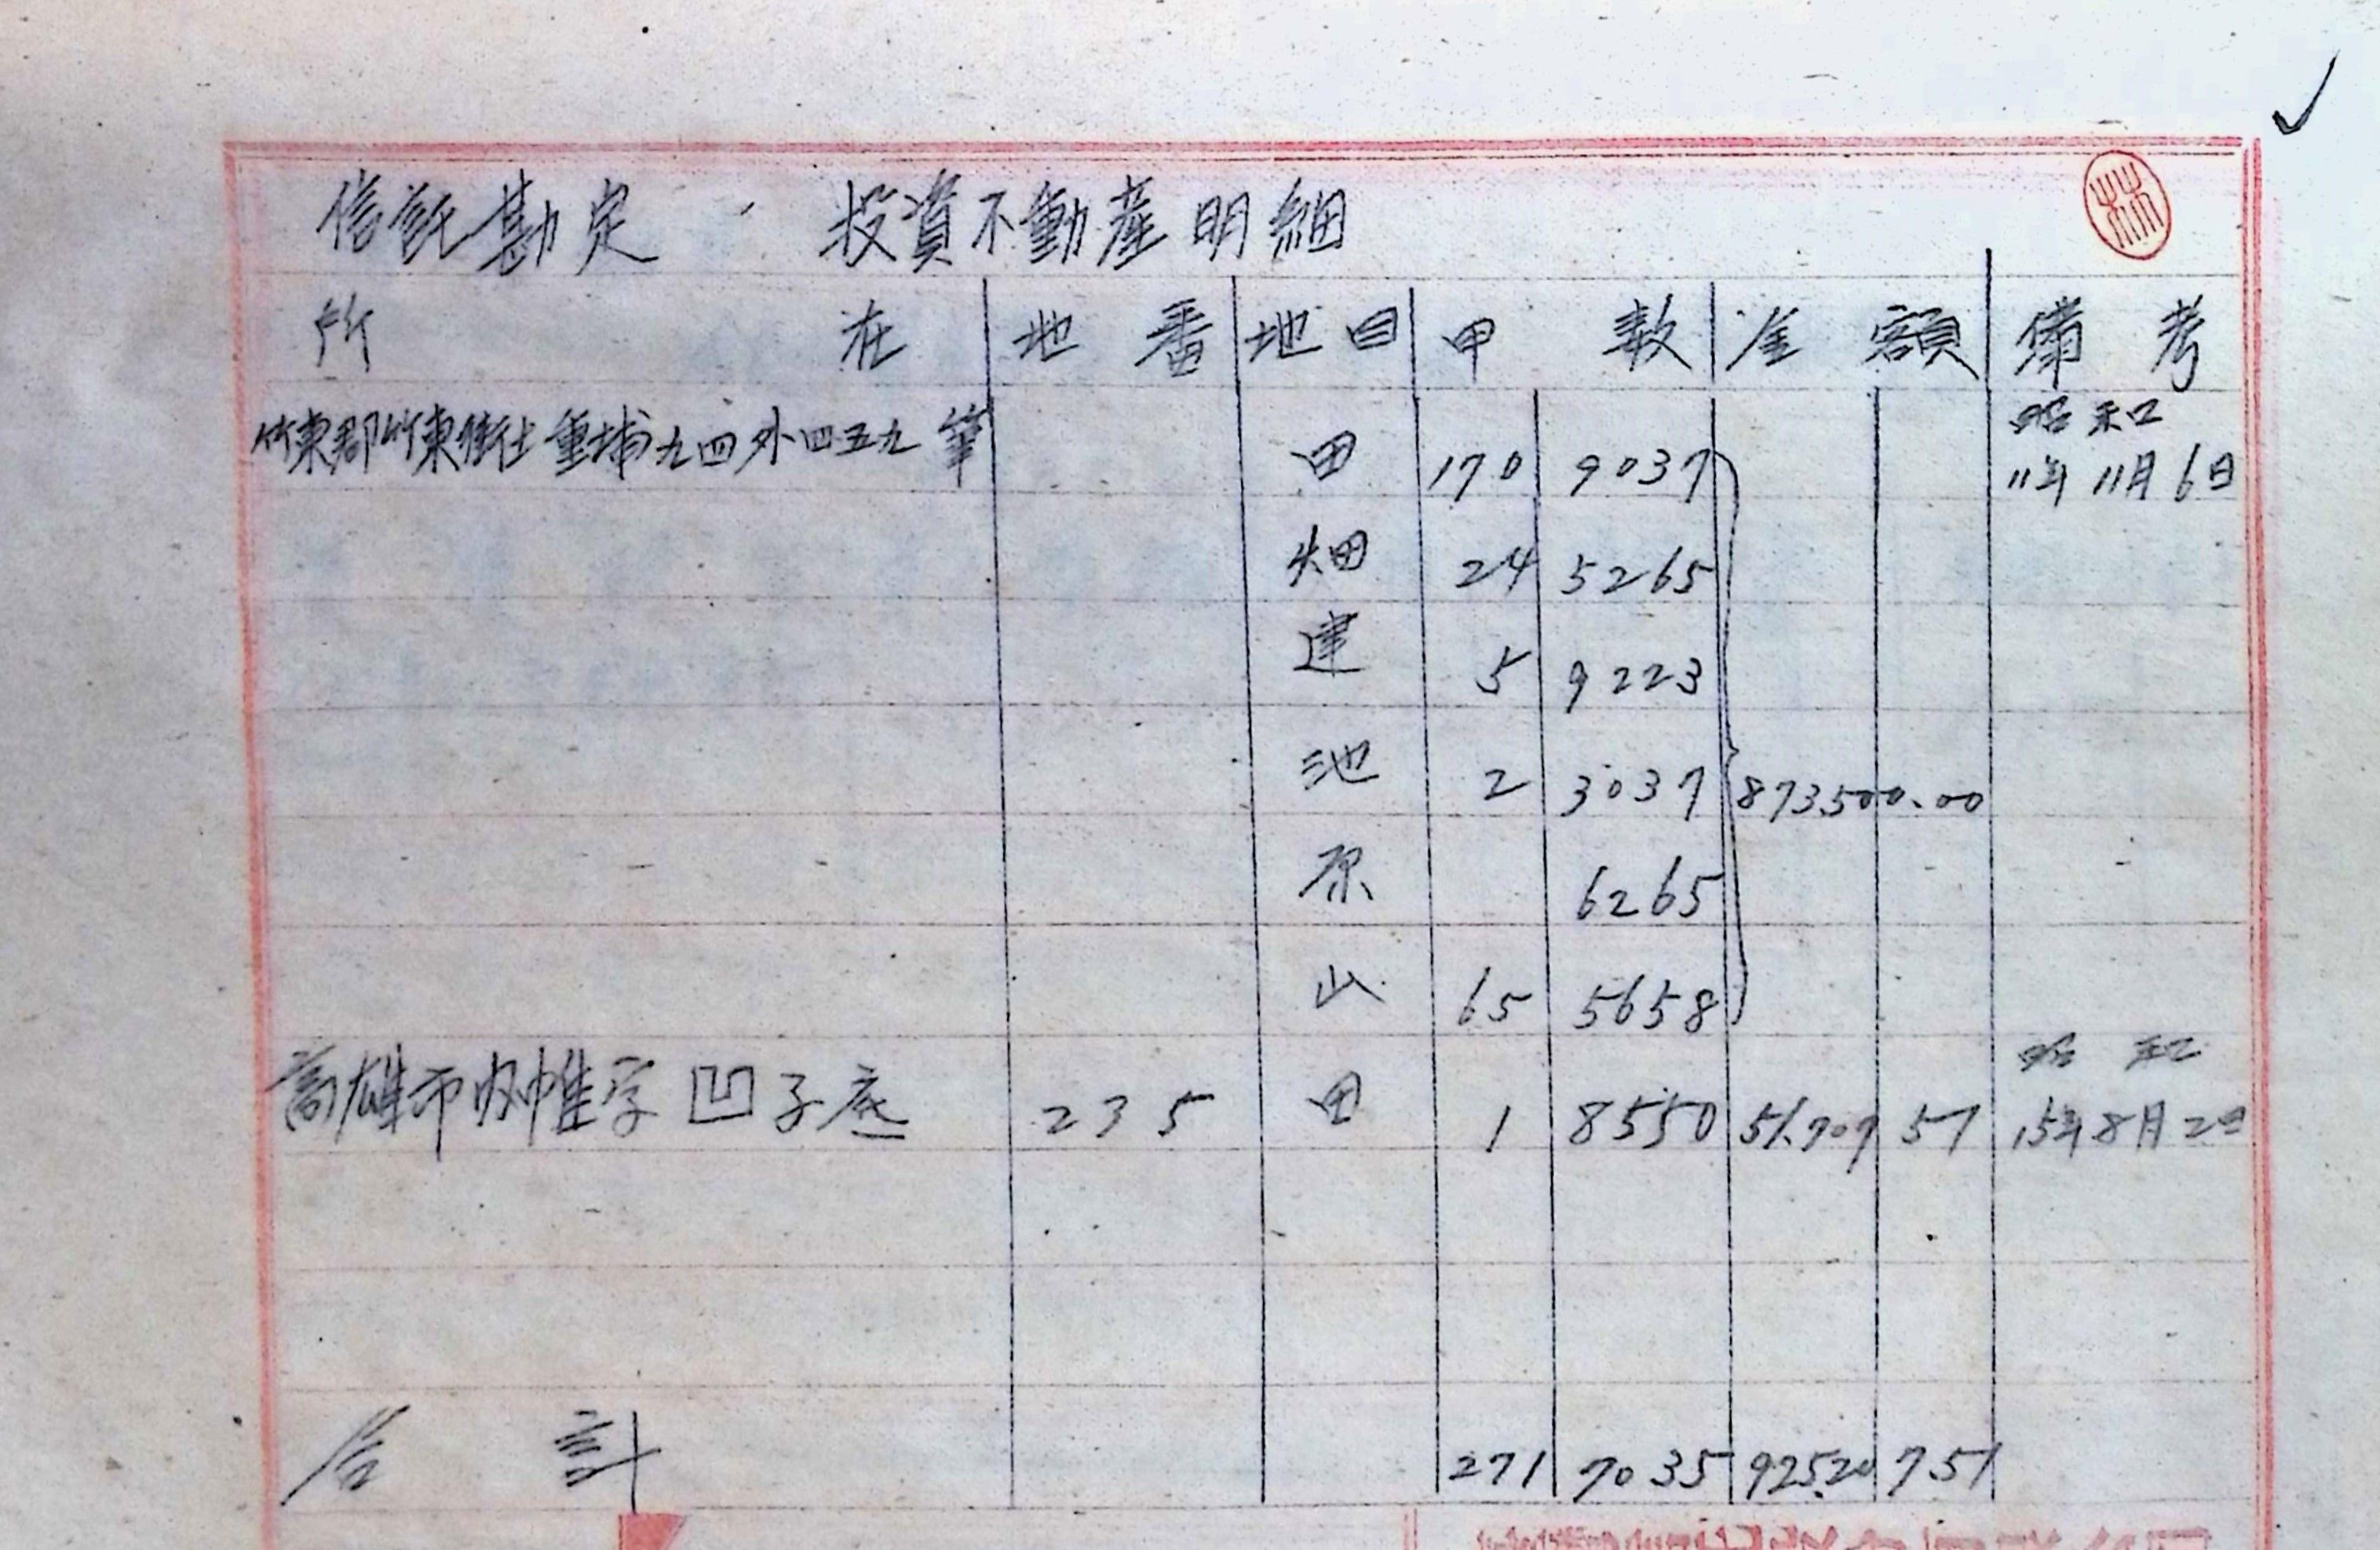 信託勘定 投資不動産明細
所在 地番 地目 甲数 金額 備考
竹東郡竹東街上重埔九四外四五九筆 田 170 9037 昭和11年11月6日
畑 24 5265
建 5 9223
池 2 3037 873.500.00
原 6265
山 65 5658
高雄市内惟字凹子底 235 田 1 8550 51.707 57 昭和15年8月2日
合計 271 7035 925.207.57